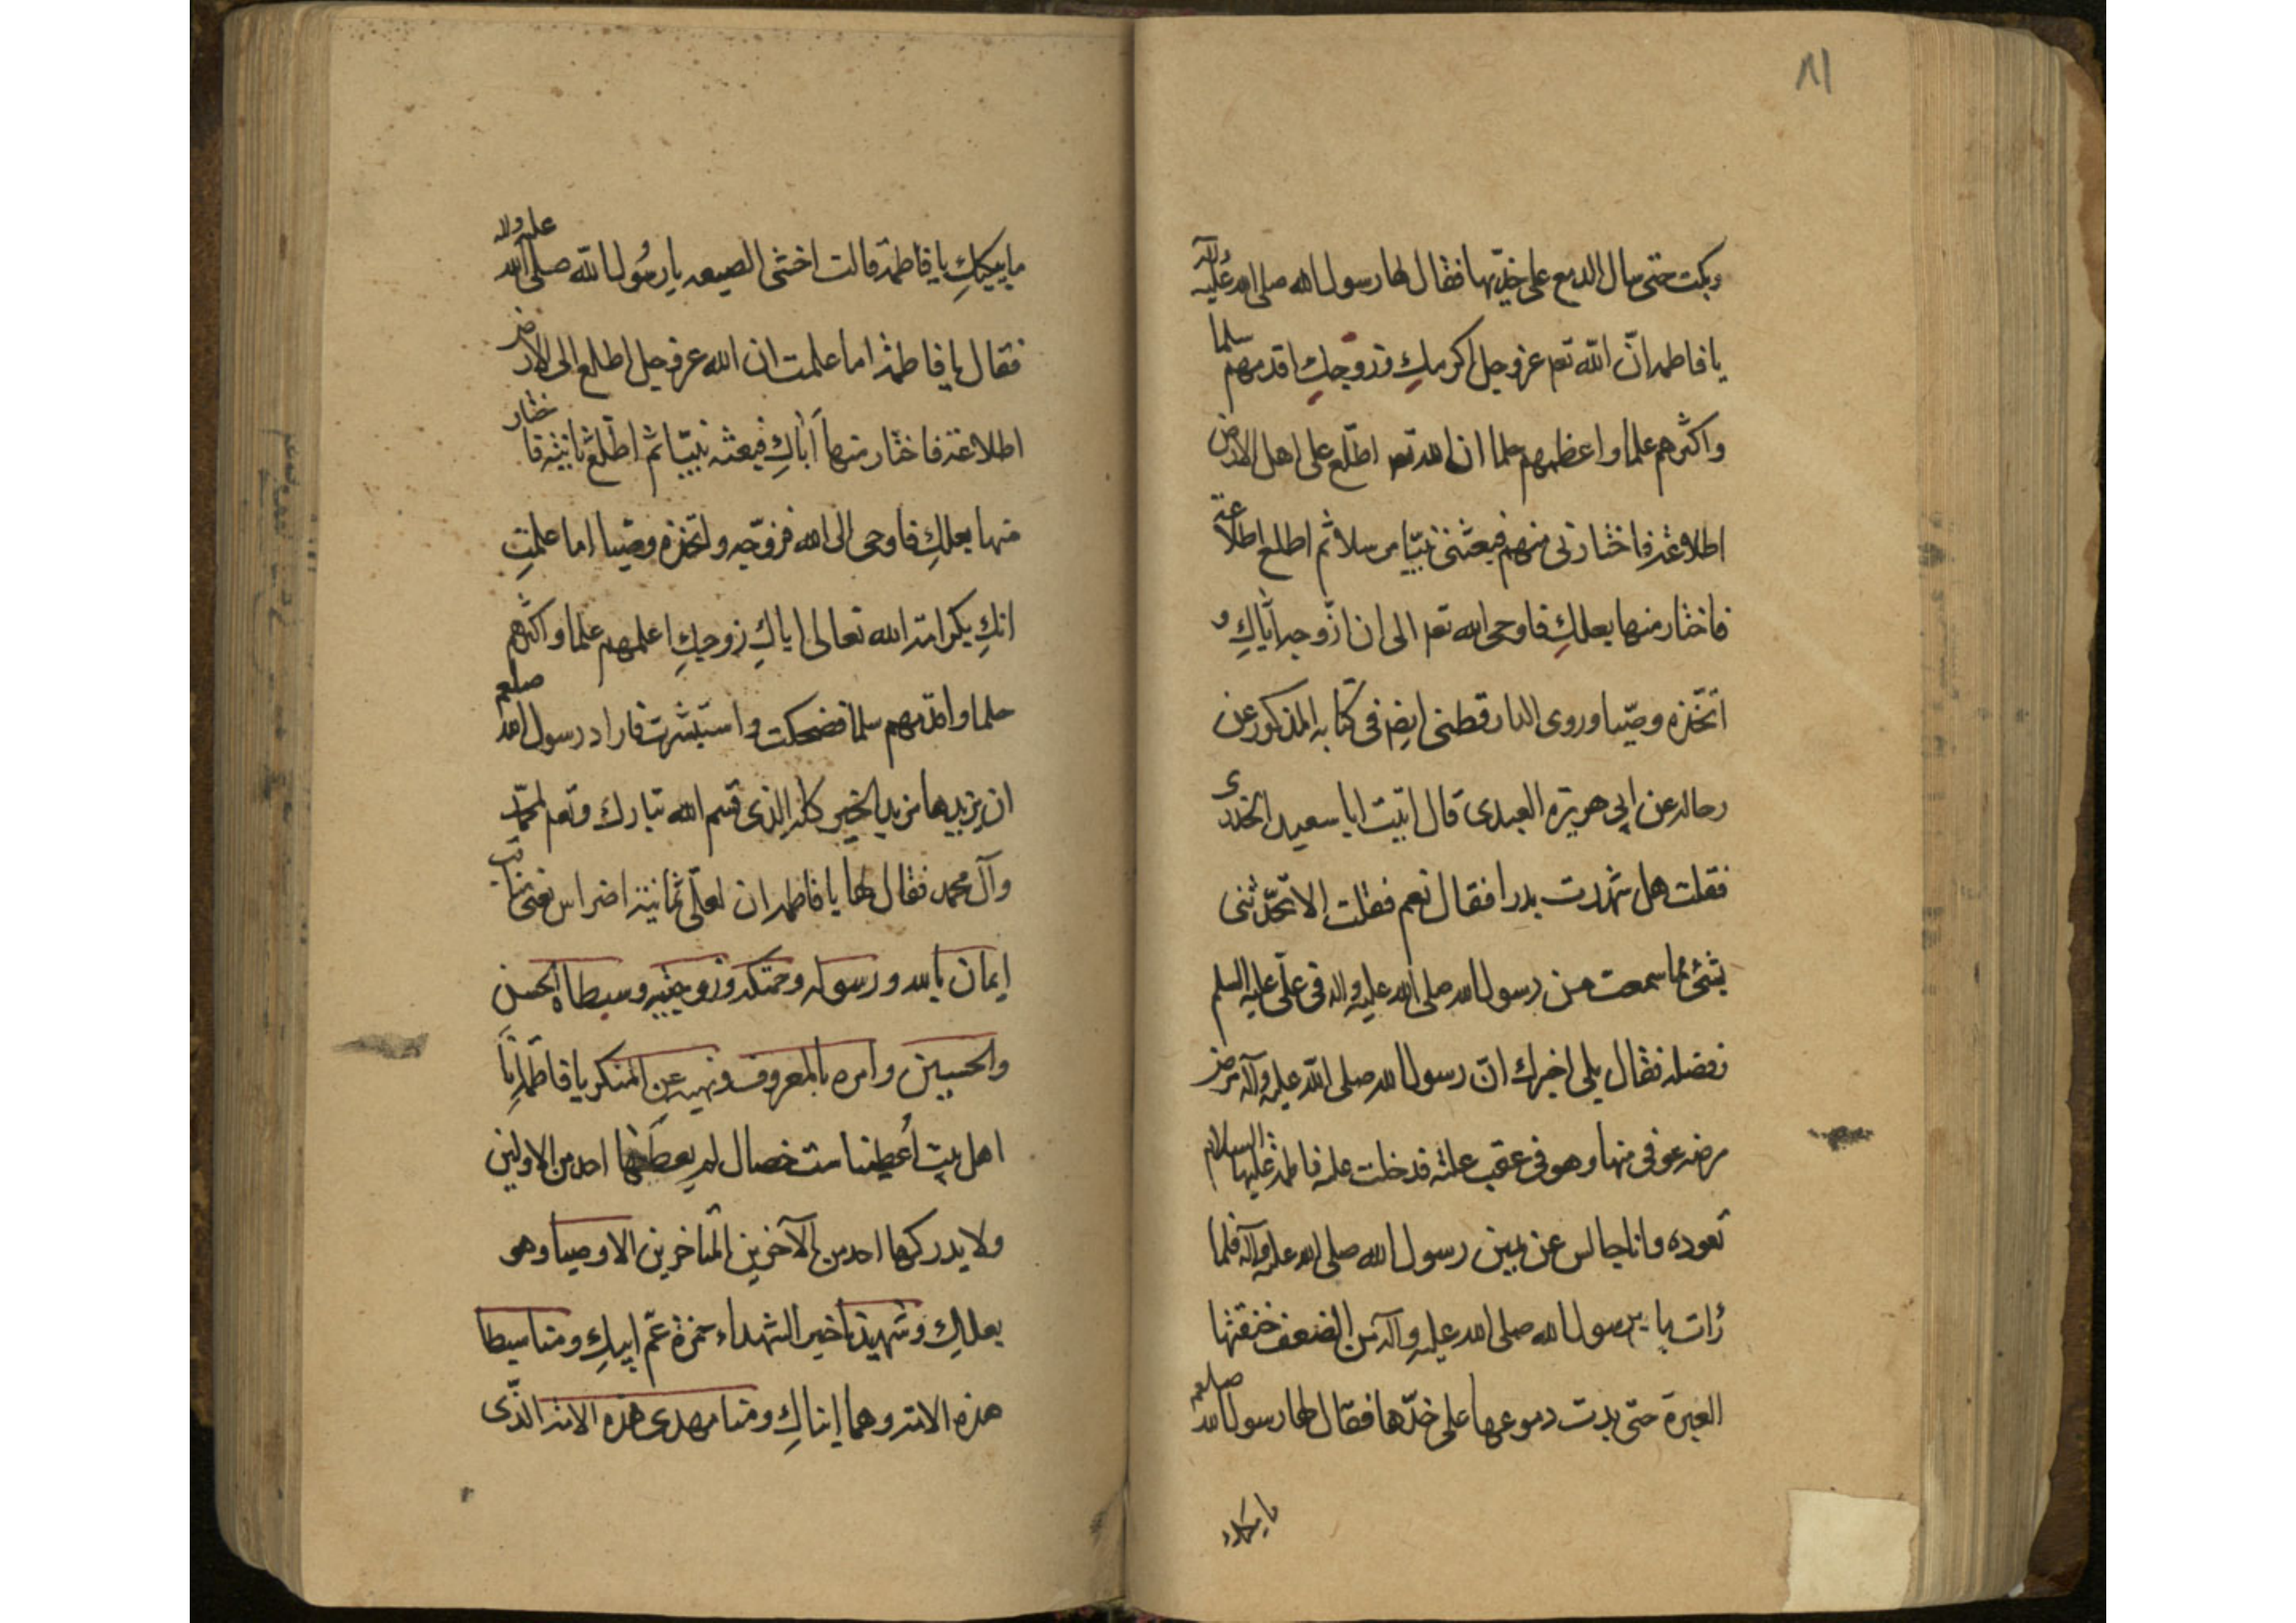 ٨١
وبكت حتى سال الدمع على خديها فقال لها رسول الله صلى الله عليه وآله
يا فاطمه انّ الله تعم عز وجل اكرمكِ وزوجكِ اقدمهم سلما
واكثرهم علما واعظمهم حلما ان الله تعم اطّلع على اهل الارض
اطلاعة فاختارنى منهم فبعثنى نبيّا مرسلا ثم اطلع اطلاعة
فاختار منها بعلكِ فاوحى الله تعم الى ان ازوجه ايّاكِ و
اتخذه وصيّا وروى الدارقطنى ايضم فى كتابه المذكور عن
رجاله عن ابى هريرة العبدى قال اتيت ابا سعيد الخدرى
فقلت هل شهدت بدرا فقال نعم فقلت الا تحدّثنى
بشئ مما سمعت من رسول الله صلى الله عليه واله فى علّى عليه السلم
وفضله فقال بلى اخبرك انّ رسول الله صلى الله عليه وآله مرض
مرضه عوفى منها وهو فى عقب علته فدخلت عليه فاطمة عليها السلام
تعوده وانا جالس عن يمين رسول الله صلى الله عليه وآله فلما
رأت ما برسول الله صلى الله عليه وآله من الضعف خنقتها
العبرة حتى بدت دموعها على خدّها فقال لها رسول الله صلعم
ما يبكيك
ما يبكيكِ يا فاطمة قالت اخشى الضيعه يا رسُول الله صلى الله عليه واله
فقال يا فاطمة اما علمت ان الله عز وجل اطلع الى الارض
اطلاعة فاختار منها اباكِ فبعثه نبيّا ثم اطّلع ثانية فاختار
منها بعلكِ فاوحى الى الله فزوّجه واتخذه وصيّا اما علمتِ
انكِ بكرامة الله تعالى اياكِ زوجكِ اعلمهم علما واكثرهم
حلما واقدمهم سلما فضحكت واستبشرت فاراد رسول الله صلعم
ان يزيدها مزيد الخير كله الذى قسم الله تبارك وتعم لمحمّد
وآل محمد فقال لها يا فاطمه ان لعلّى ثمانية اضراس يعنى مناقب
ايمان بالله ورسوله وحكمته وزوجته وسبطاه الحسن
والحسين وامره بالمعروف ونهيه عن المنكر يا فاطمة انّا
اهل بيت أُعطينا ست خصال لم يعطها احد من الاولين
ولا يدركها احد من الآخرين المتاخرين الاوصيا وهو
بعلكِ وشهيدنا خير الشهداء حمزة عمّ ابيكِ ومنا سبطا
هذه الامة وهما ابناكِ ومنا مهدى هذه الامة الذّى